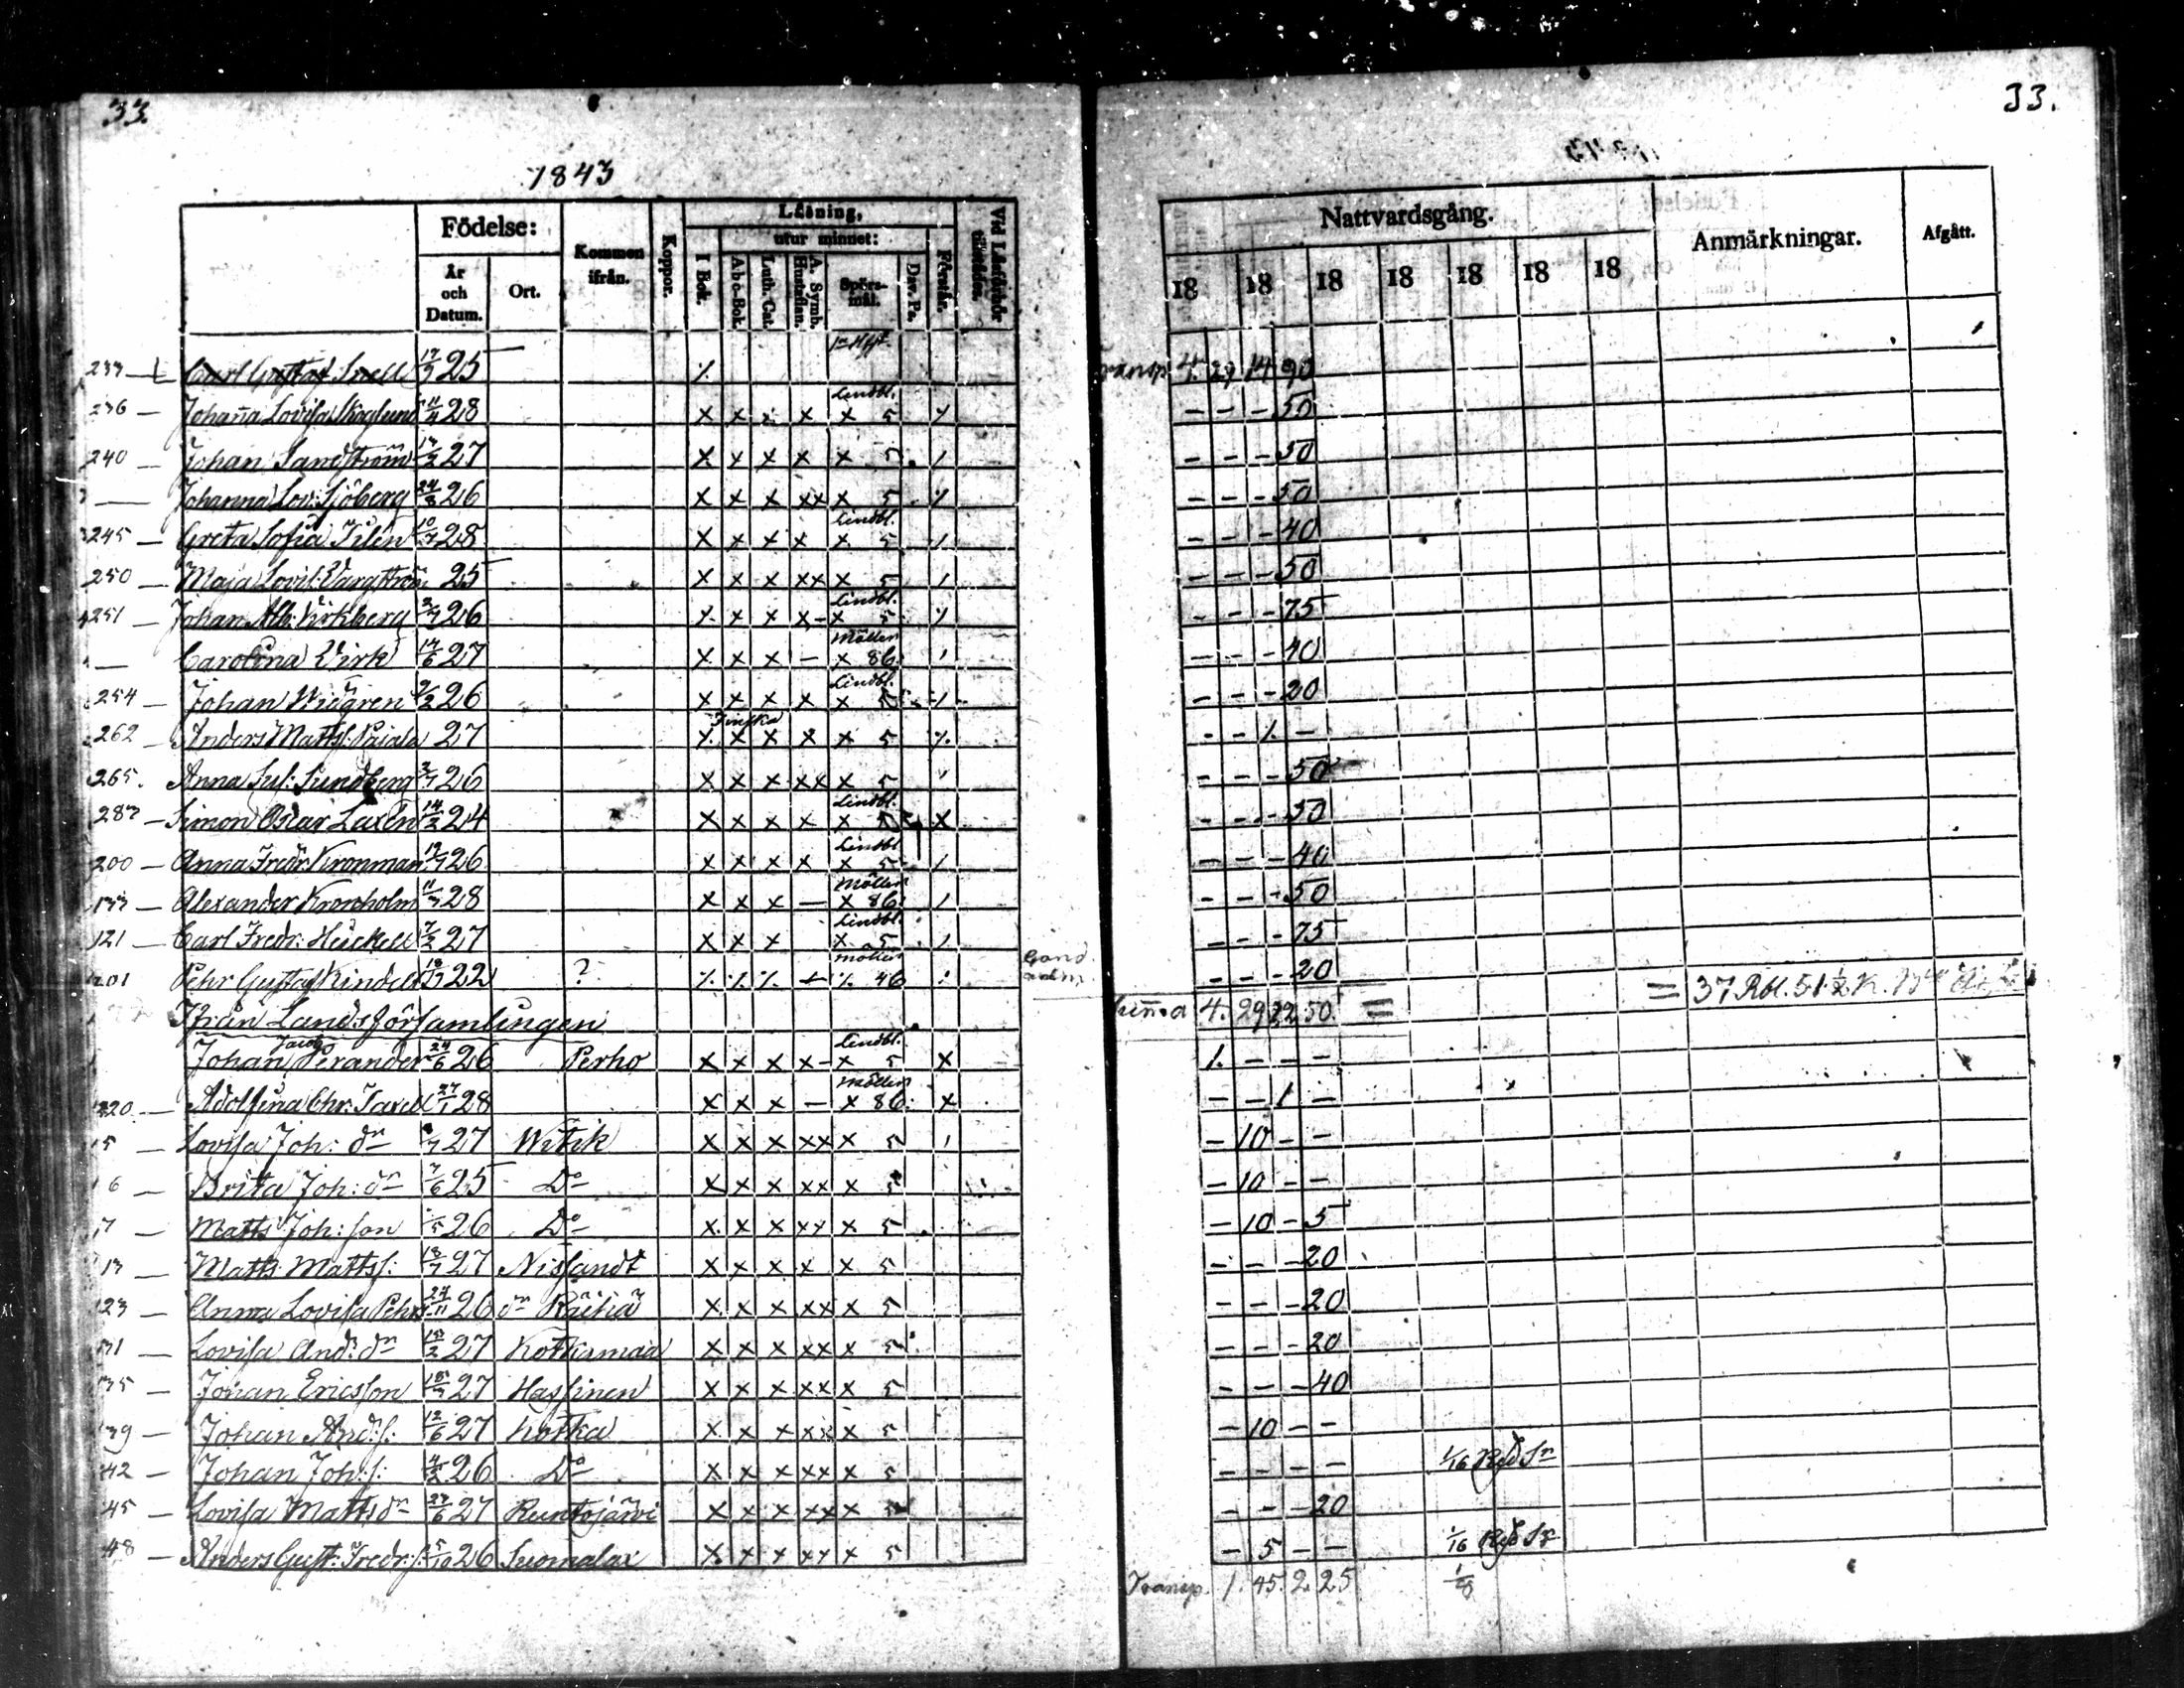 33.
1843
Födelse:
År och Datum.
Ort.
Kommen ifrån.
Koppor.
Läsning,
I Bok.
utur minnet:
A b c-Bok.
Luth. Cat.
A. Symb. Hustaflan.
Spörsmål.
Dav. Ps.
Förstår.
Vid Läsförhör tillstädes.
Carl Gustaf Snell 25
236 — Johanna Lovisa Skoglund 11/4 28 x x x x Lindbl. x 5
240 — Johan Sandström 27 x x x x x 5
Johanna Lov: Sjöberg 24/8 26 x x x xx x 5
245 — Greta Sofia Tilén 28 x x x x Lindbl. x 5
250 — Maja Lovis: Vargström 25 x x x xx x 5
251 — Johan Alb: Kirkberg 26 x x x x- Lindbl. x 5
Carolina Virk 14/6 27 x x x — Möller x 86
254 — Johan Widgren 9/2 26 x x x x Lindbl. x 5
262 — Anders Matts: Paiala 27 Finska x x x x 5
265. Anna Sus: Sundberg 26 x x x xx x 5
Simon Oscar Laxén 14/2 24 x x x x Lindbl. x 5 x
200 — Anna Fredr: Kronman 26 x x x x Lindbl. x 5
133 — Alexander Kronholm 28 x x x — Möller x 86
121 — Carl Fredr: Heickell 7/2 27 x x x Lindbl. x 5
201 Pehr Gustaf Rindell 22 ? Möller 46
Ifrån Landsförsamlingen
Johan Jacob Perander 24/6 26 Perho x x x x- Lindbl. x 5 x
Adolfina Chr: Taxell 27/1 28 x x x — Möller x 86 x
5 Lovisa Joh: dn 27 Witik x x x xx x 5
6 — Brita Joh: dn 25 Do x x x xx x 5
7 — Matts Joh: son 26 Do x x x xx x 5
13 — Matts Matts: 27 Nissandt x x x x x 5
23 — Anna Lovisa Pehrs 26 dn Räihä x x x xx x 5
31 — Lovisa And: dn 27 Kotkamaa x x x xx x 5
35 — Johan Ericsson 27 Hassinen x x x xx x 5
39 — Johan And:s: 12/6 27 Kotka x x x xx x 5
42 — Johan Joh:s: 4/2 26 Do x x x xx x 5
45 — Lovisa Matts dn 27/6 27 Runtojärvi x x x xx x 5
48 — Anders Gust: Fredr: s: 5/10 26 Suomalax x x x xx x 5
33.
Nattvardsgång.
Anmärkningar.
Afgått.
18 18 18 18 18 18 18
Transp. 4. 29 14 90
— — — 50
— — — 50
— — — 50
— — — 40
— — — 50
— — — 75
— — — 40
— — — 20
— — 1. —
— — — 50
— — — 50
— — — 40
— — — 50
— — — 75
— — — 20
Summa 4. 29 22 50 = = 37 Rbl. 51 1/2 K.
1. — — —
— — 1 —
— 10 — —
— 10 — —
— 10 — 5
— — — 20
— — — 20
— — — 20
— — — 40
— 10 — —
— — — — 1/16
— — — 20
— 5 — — 1/16
Transp. 1. 45. 2. 25 1/8